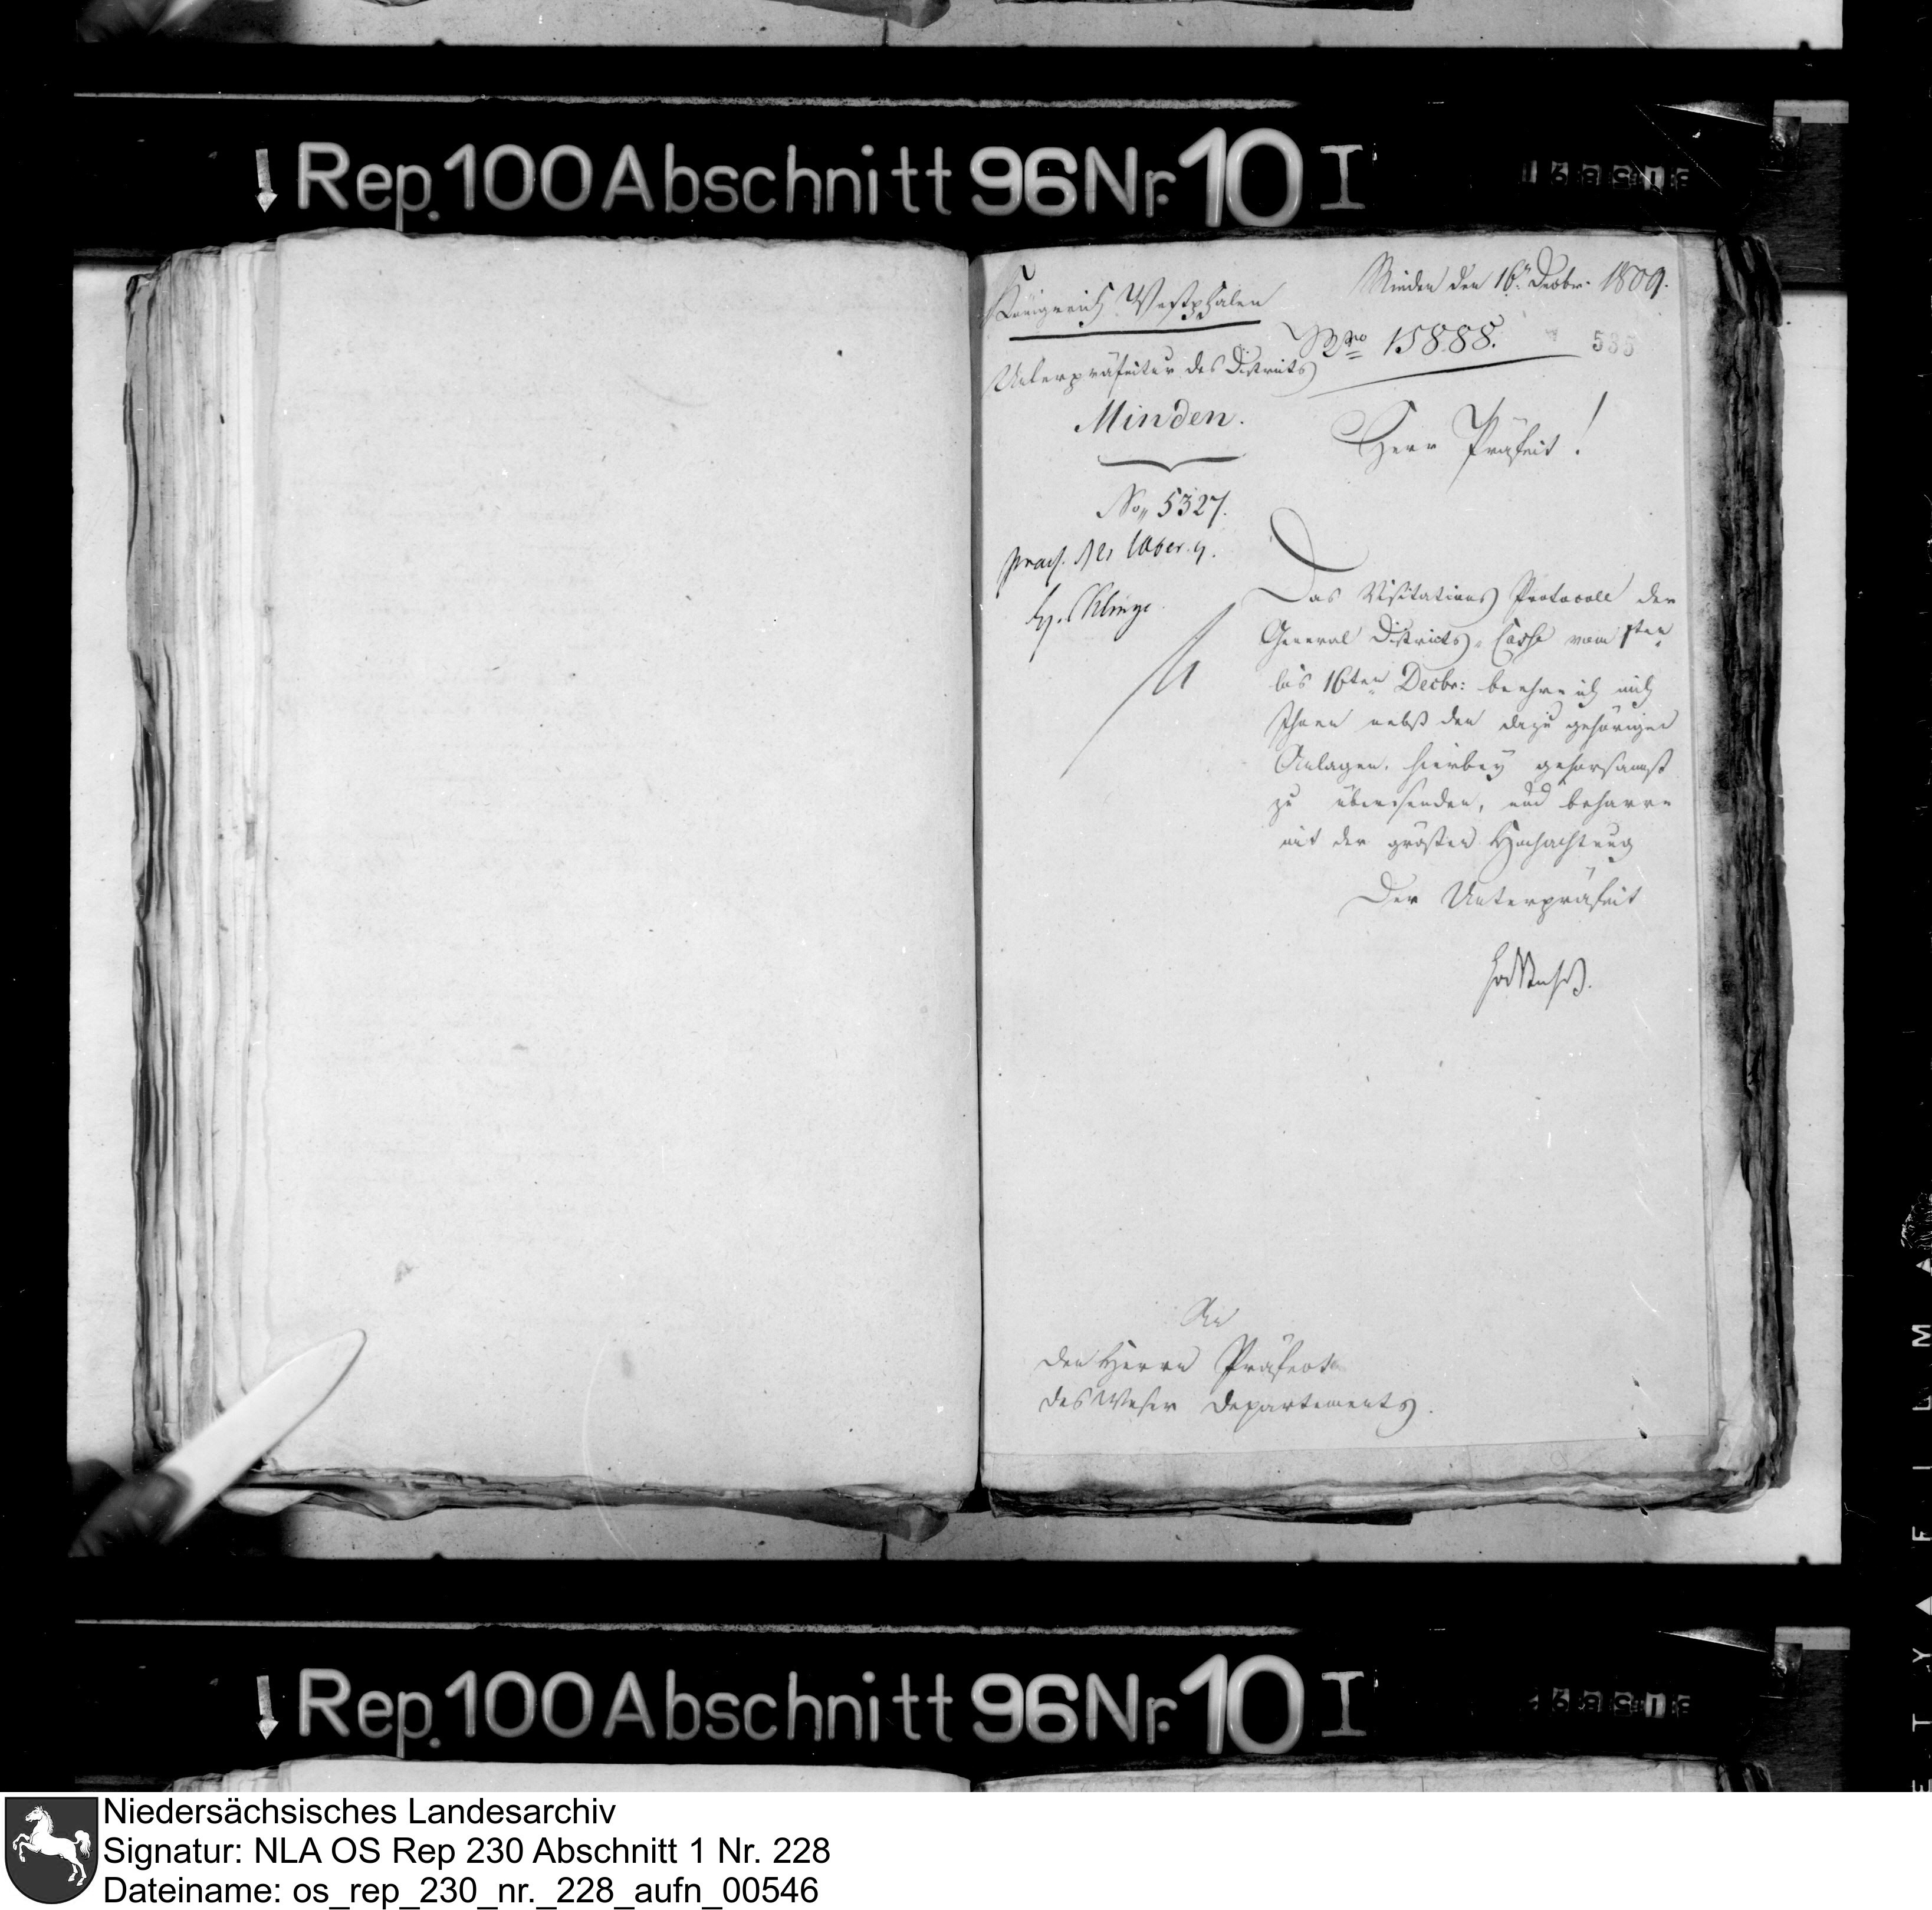 Rep. 100 Abschnitt 96 Nr. 10 I
Königreich Westphalen
Minden den 16ⁿ Decbr. 1809.
Nro 15888.
535
Unterpräfectur des Districts
Minden.
Herr Präfect!
No. 5327.
Das Visitations Protocoll der
General Districts-Casse vom 1ten
bis 16ten Decbr: beehre ich mich
Ihnen nebst den dazu gehörigen
Anlagen, hierbey gehorsamst
zu übersenden, und beharre
mit der größten Hochachtung
Der Unterpräfect
An
den Herrn Präfect
des Weser Departements.
Rep. 100 Abschnitt 96 Nr. 10 I
Niedersächsisches Landesarchiv
Signatur: NLA OS Rep 230 Abschnitt 1 Nr. 228
Dateiname: os_rep_230_nr._228_aufn_00546